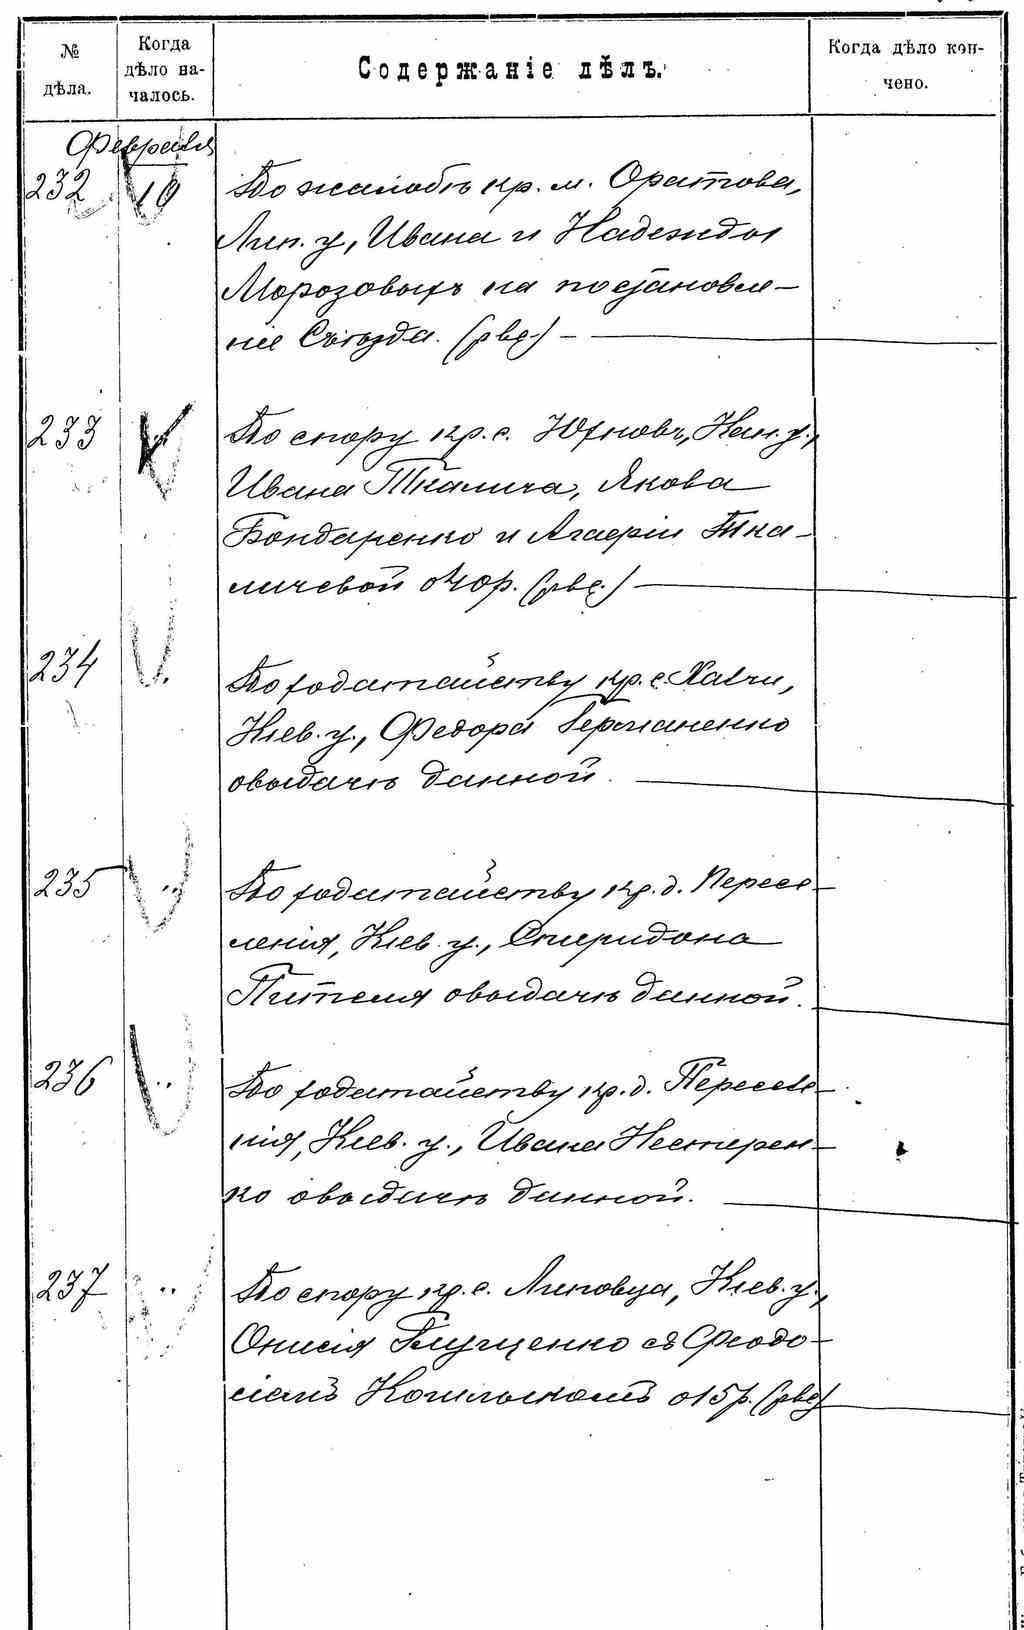 № дѣла.
Когда дѣло на-
чалось.
Содержаніе дѣлъ.
Когда дѣло кон-
чено.
Февраля
232 10 По жалобѣ кр. м. Оратова,
Лип. у., Ивана и Надежды
Морозовыхъ на постановле-
ніе Съѣзда.
233 По спору кр. с. Юхновъ, Кан. у.,
Ивана Ткалича, Якова
Бондаренко и Агафіи Тка-
личевой
234 По ходатайству кр. с.
Кіев. у., Федора Германенко
о выдачѣ данной.
235 По ходатайству кр. д. Пересе-
ленія, Кіев. у., Спиридона
Пителя о выдачѣ данной.
236 По ходатайству кр. д. Переселе-
нія, Кіев. у., Ивана Нестерен-
ко о выдачѣ данной.
237 По спору кр. с. Липовца, Кіев. у.,
Онисія Глущенко съ Феодо-
сіемъ о 15 р.